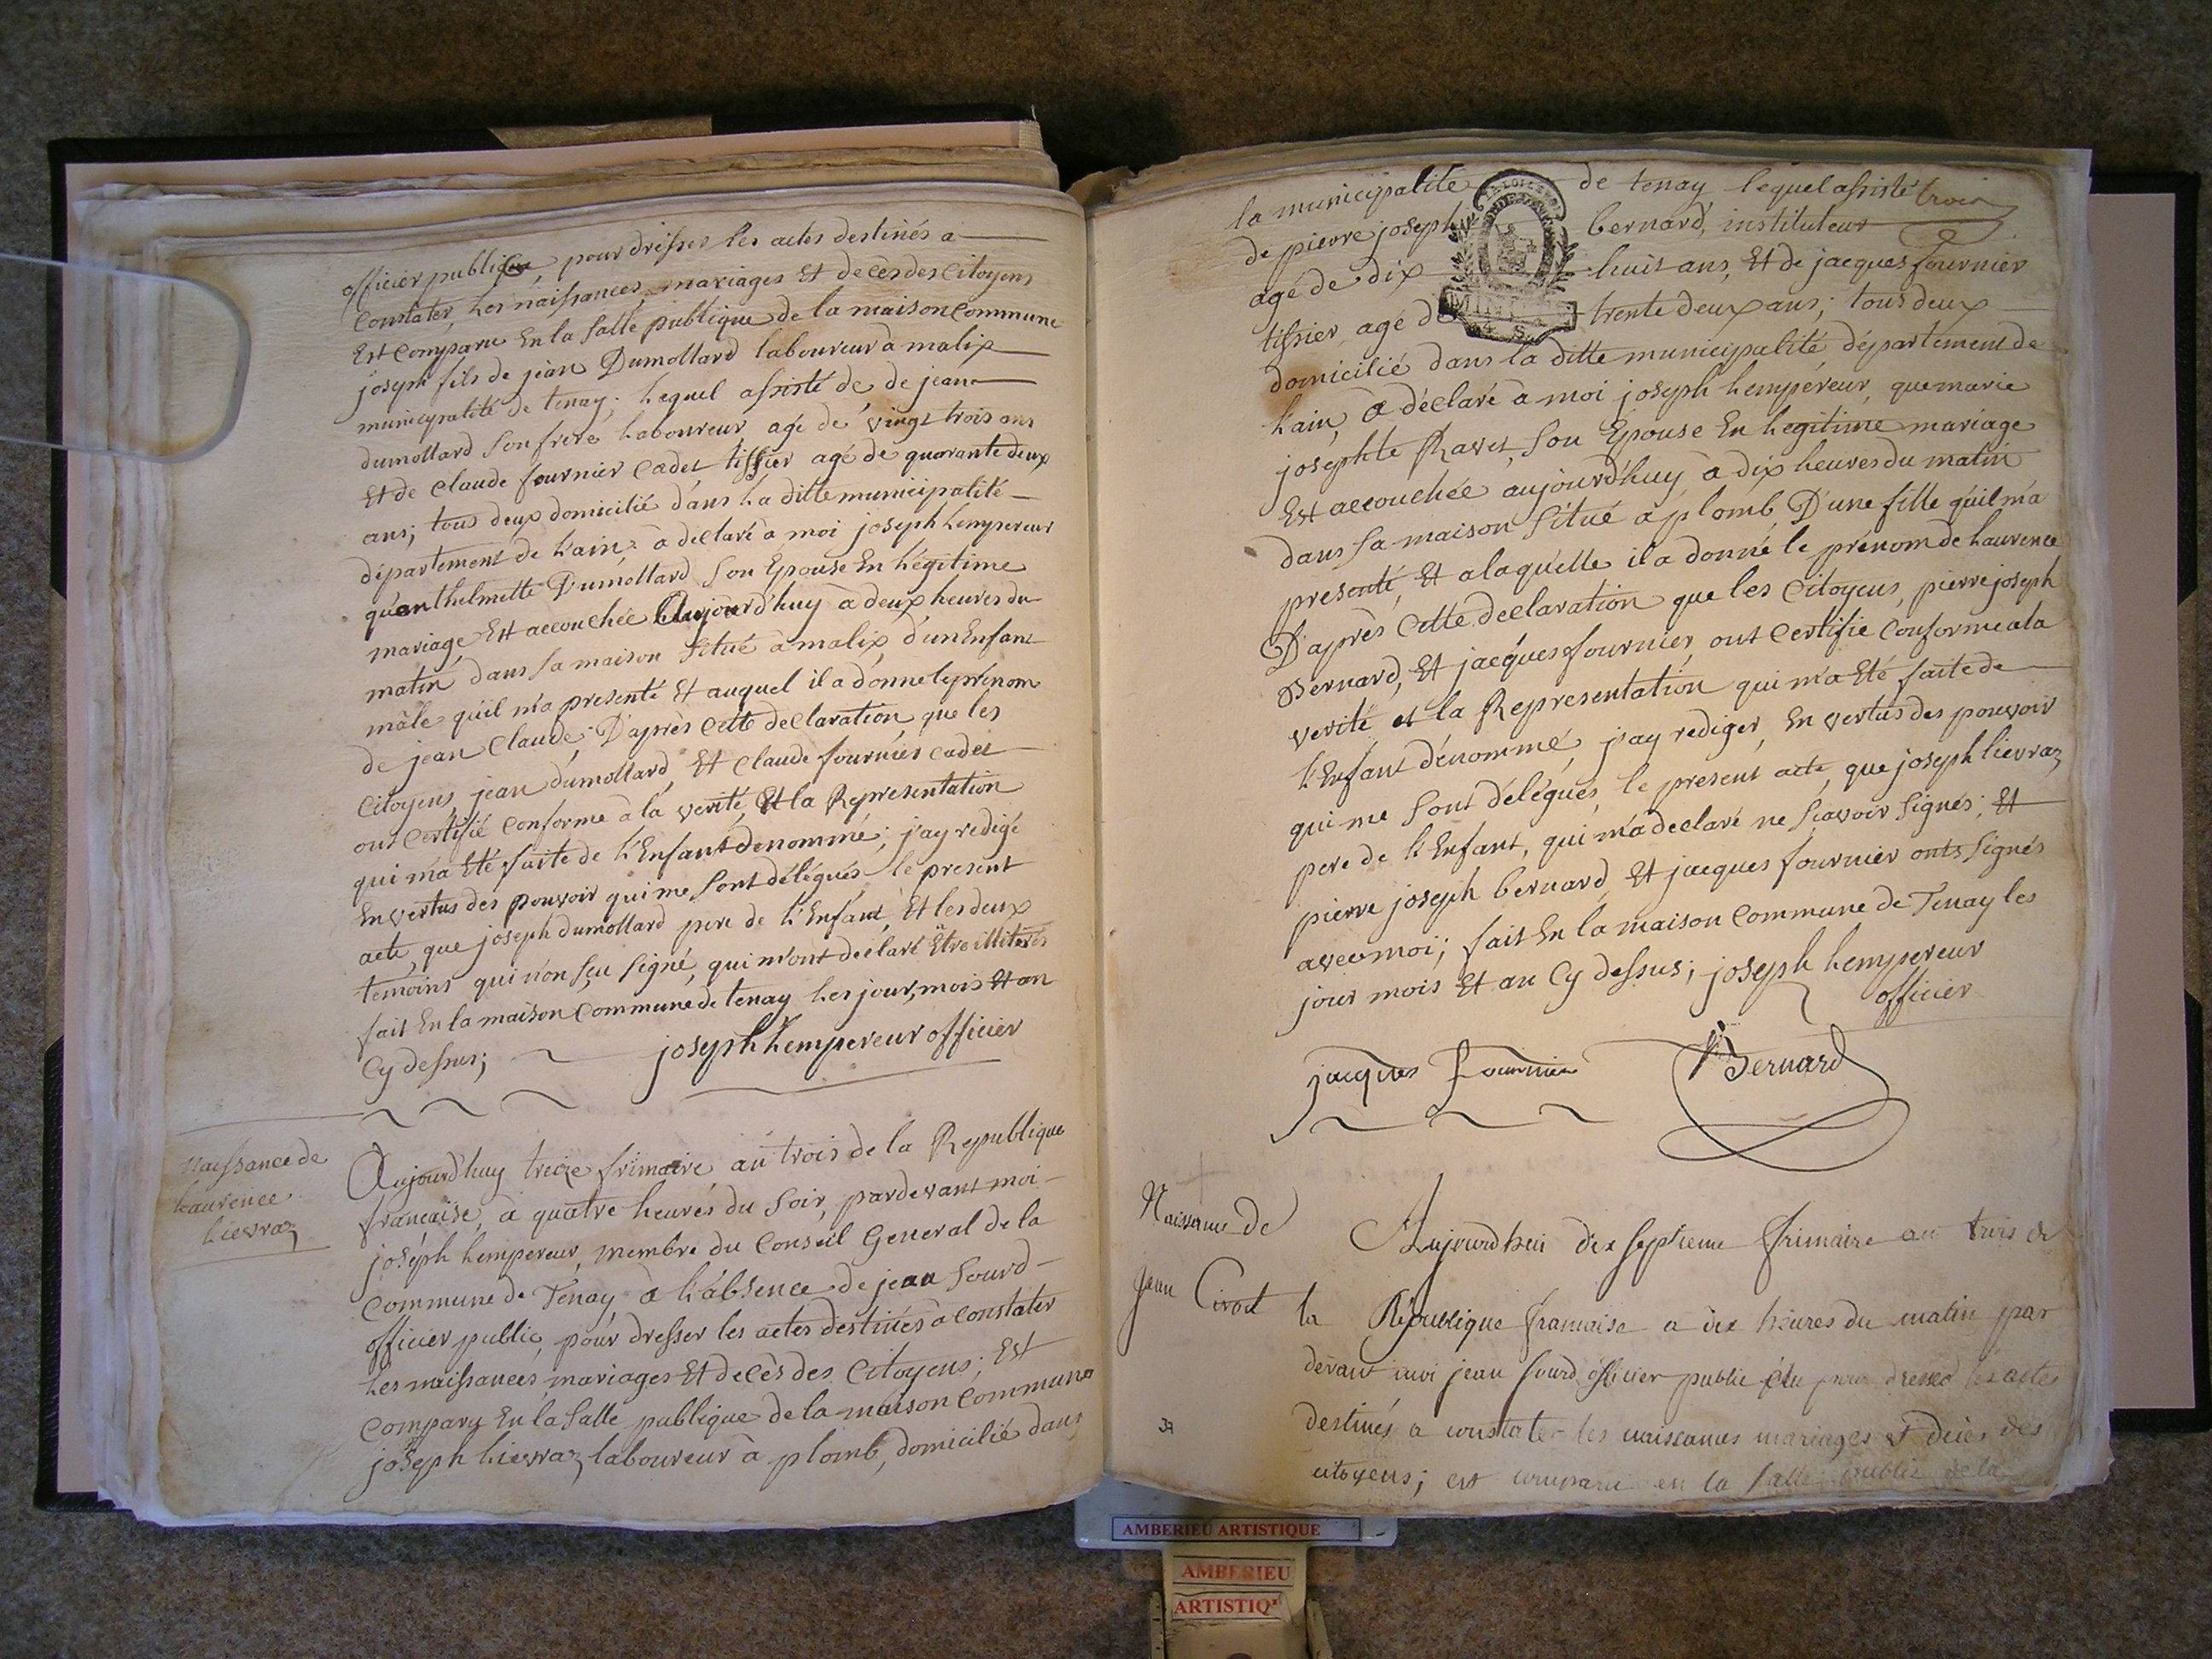 officier publique, pour drésser les actes destinés a
Constater, les naissances, mariages Et decès des Citoyens
Est Comparu En la Salle publique de la maison Commune
joseph fils de jean Dumollard laboureur à malix
municipalité de tenay; lequel assisté de de jean
dumollard Son frere laboureur agé de vingt trois ans
Et de Claude fournier Cadet tissier agé de quarante deux
ans; tous deux domicilié dans la ditte municipalité
département de l'ain, à déclaré à moi joseph lempereur
qu'anthelmette Dumollard Son Epouse En légitime
mariage Est accouchée Aujourd'huy à deux heures du
matin dans sa maison Situé à malix d'un Enfant
mâle qu'il m'a présenté Et auquel il a donné le prénom
de jean Claude; D'après Cette declaration, que les
Citoyens, jean dumollard, Et Claude fournier Cadet
ont Certifié Conforme à la verité, Et la Représentation
qui m'a Eté faite de l'Enfant denommé; j'ay redigé
En vertus des pouvoir qui me Sont délégués le present
acte, que joseph dumollard pere de l'Enfant, Et les deux
temoins qui n'on sçu Signé, qui m'ont declaré Etre illiterés
fait En la maison Commune de tenay les jour, mois Et an
Cy dessus;
joseph lempereur officier
Naissance de
laurence
lievraz
Aujourd'huy treize frimaire an trois de la Republique
francaise, à quatre heures du Soir, pardevant moi
joseph lempereur, membre du Conseil General de la
Commune de Tenay à l'absence de jean Sourd
officier public, pour dresser les actes destinés à Constater
les naissances mariages Et decès des Citoyens; Est
Compary En la Salle publique de la maison Commune
joseph lievraz laboureur à plomb, domicilié dans
la municipalité de tenay lequel assisté
trois
de pierre joseph bernard, instituteur
agé de dix huit ans, Et de jacques fournier
tissier, agé de trente deux ans; tous deux
domicilié dans la ditte municipalité département de
l'ain, à déclaré à moi joseph lempéreur, que marie
josephte Ravet, Son Epouse En legitime mariage
Est accouchée aujourd'huy à dix heures du matin
dans sa maison Situé à plomb D'une fille quil m'a
presenté, Et a laquelle il a donné le prénom de laurence
D'après Cette declaration que les Citoyens, pierre joseph
Bernard, Et jacques fournier, ont Certifie Conforme a la
verité et la Représentation qui m'a Eté faite de
l'Enfant dénommé, j'ay rediger, En vertus des pouvoir
qui me Sont délégués, le present acte, que joseph lievraz
pere de l'Enfant, qui m'a declaré ne Scavoir Signés; Et
pierre joseph bernard Et jacques fournier onts Signés
avec moi; fait En la maison Commune de Tenay les
jour mois Et an Cy dessus; joseph lempereur
officier
jacques fournier
Bernard
Naissance de
jean
Aujourd'hui dix septieme frimaire an trois de
la République francaise a dix heures du matin par
devant moi jean Sourd officier public élu pour dresser les actes
destinés a constater les naissances mariages et décès des
citoyens; est comparu en la Salle public de la
37
AMBERIEU ARTISTIQUE
AMBERIEU
ARTISTIQ